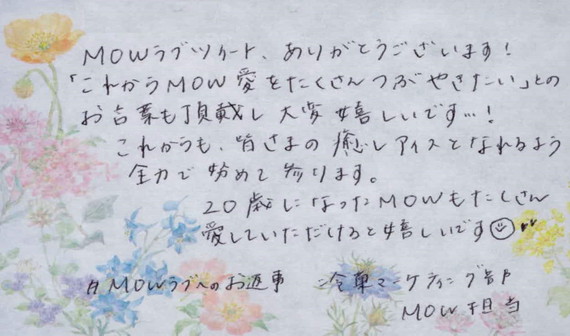 MOWラブツイート、ありがとうございます！
「これからMOW愛をたくさんつぶやきたい」との
お言葉も頂戴し大変嬉しいです…！
これからも、皆さまの癒しアイスとなれるよう
全力で努めて参ります。
20歳になったMOWもたくさん
愛していただけると嬉しいです
#MOWラブへのお返事
冷菓マーケティング部
MOW担当